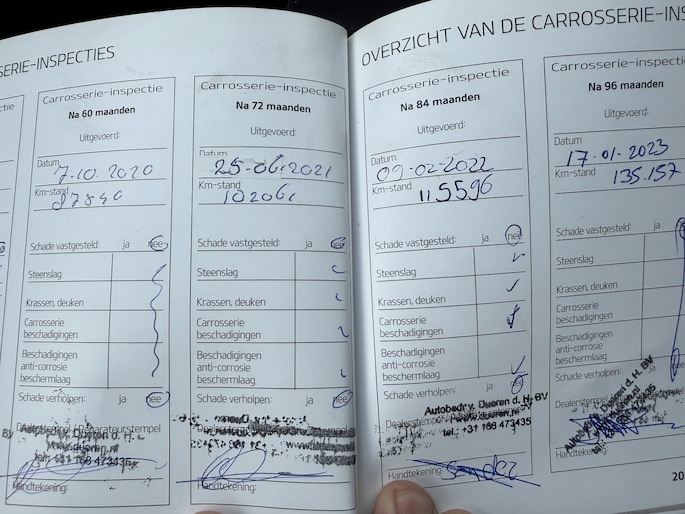 SERIE-INSPECTIES
Carrosserie-inspectie
Na 60 maanden
Uitgevoerd:
Datum
7.10.2020
Km-stand
Schade vastgesteld: ja nee
Steenslag
Krassen, deuken
Carrosserie
beschadigingen
Beschadigingen
anti-corrosie
beschermlaag
Schade verholpen: ja nee
Autobedr. Dueren d. H.
www.dueren.nl
tel.: +31 168 473435
Handtekening:
Carrosserie-inspectie
Na 72 maanden
Uitgevoerd:
Datum
25-06-2021
Km-stand
Schade vastgesteld: ja nee
Steenslag
Krassen, deuken
Carrosserie
beschadigingen
Beschadigingen
anti-corrosie
beschermlaag
Schade verholpen: ja nee
Handtekening:
OVERZICHT VAN DE CARROSSERIE-INS
Carrosserie-inspectie
Na 84 maanden
Uitgevoerd:
Datum
09-02-2022
Km-stand
115596
Schade vastgesteld: ja nee
Steenslag
Krassen, deuken
Carrosserie
beschadigingen
Beschadigingen
anti-corrosie
beschermlaag
Schade verholpen: ja nee
Autobedr. Dueren d. H. BV
www.dueren.nl
tel.: +31 168 473435
Handtekening:
Carrosserie-inspectie
Na 96 maanden
Uitgevoerd:
Datum
17.01-2023
Km-stand
135.157
Schade vastgesteld: ja
Steenslag
Krassen, deuken
Carrosserie
beschadigingen
Beschadigingen
anti-corrosie
beschermlaag
Schade verholpen: ja
Autobedr. Dueren d. H. BV
Handtekening:
20